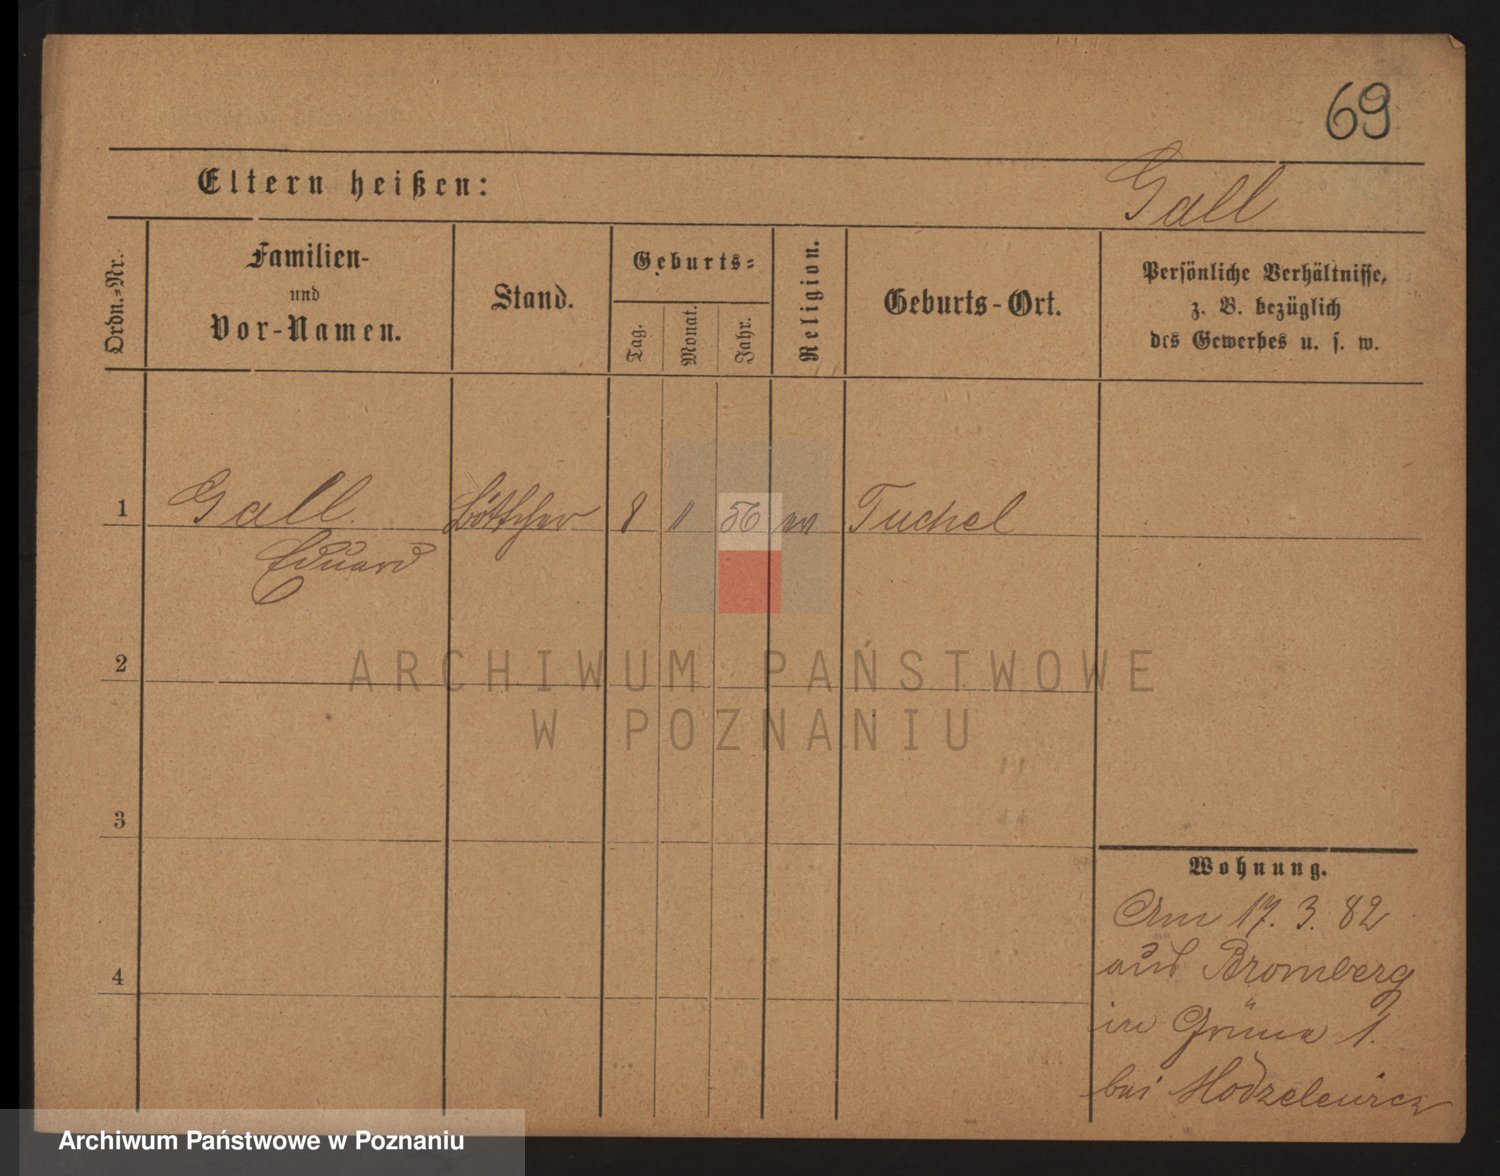 69
Eltern heißen:
Gall
Ordn.-Nr.
Familien-
und
Vor-Namen.
Stand.
Geburts-
Tag.
Monat.
Jahr.
Religion.
Geburts-Ort.
Persönliche Verhältnisse,
z. B. bezüglich
des Gewerbes u. s. w.
1
Gall
Eduard
Böttcher
8
11
56
Tuchel
2
ARCHIWUM PAŃSTWOWE
W POZNANIU
3
Wohnung.
Am 17. 3. 82
aus Bromberg
in Grüne 1.
bei Modzelewicz
4
Archiwum Państwowe w Poznaniu